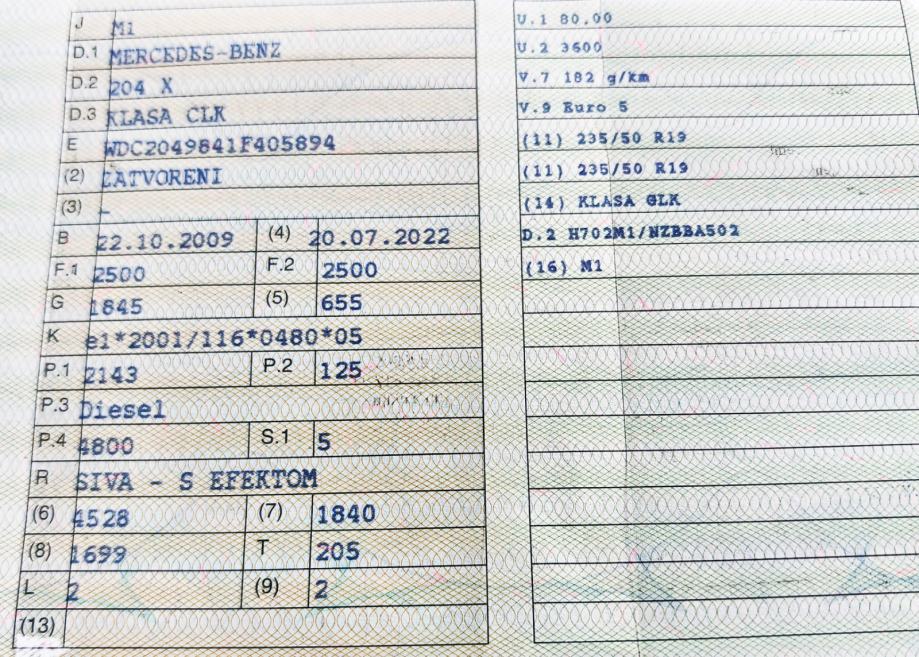 J M1
D.1 MERCEDES-BENZ
D.2 204 X
D.3 KLASA CLK
E WDC2049841F405894
(2) ZATVORENI
(3) -
B 22.10.2009 (4) 20.07.2022
F.1 2500 F.2 2500
G 1845 (5) 655
K e1*2001/116*0480*05
P.1 2143 P.2 125
P.3 Diesel
P.4 4800 S.1 5
R SIVA - S EFEKTOM
(6) 4528 (7) 1840
(8) 1699 T 205
L 2 (9) 2
(13)
U.1 80,00
U.2 3600
V.7 182 g/km
V.9 Euro 5
(11) 235/50 R19
(11) 235/50 R19
(14) KLASA GLK
D.2 H702M1/NZBBA502
(16) M1